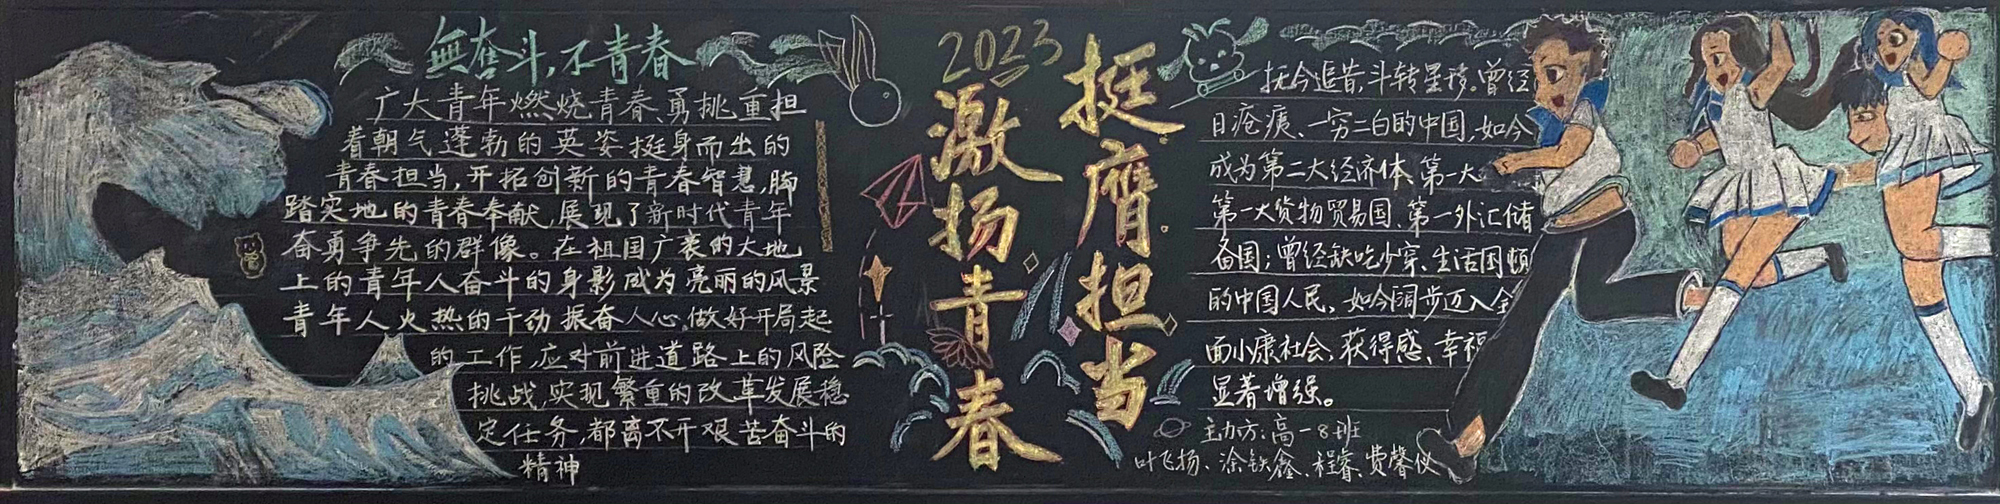 無奮斗,不青春
广大青年燃烧青春、勇挑重担
着朝气蓬勃的英姿挺身而出的
青春担当,开拓创新的青春智慧,脚
踏实地的青春奉献,展现了新时代青年
奋勇争先的群像。在祖国广袤的大地
上的青年人奋斗的身影成为亮丽的风景
青年人火热的干劲振奋人心。做好开局起
的工作,应对前进道路上的风险
挑战,实现繁重的改革发展稳
定任务,都离不开艰苦奋斗的
精神
2023
激扬青春
挺膺担当
抚今追昔,斗转星移。曾经
日疮痍、一穷二白的中国,如今
成为第二大经济体、第一大
第一大货物贸易国、第一外汇储
备国;曾经缺吃少穿、生活困顿
的中国人民,如今阔步迈入全
面小康社会,获得感、幸福
显著增强。
主力方:高一8班
叶飞扬、涂铁鑫、程睿、费馨仪